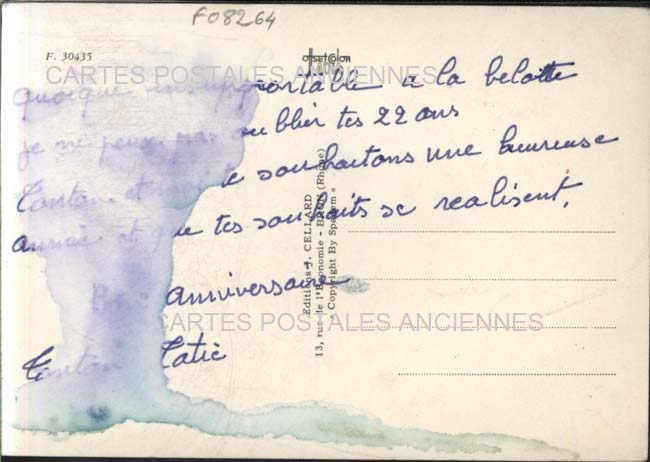 F08264
F. 30435
OFFSET COLOR
CARTES POSTALES ANCIENNES
quoique insupportable à la belotte
je ne peux pas oublier tes 22 ans
Tonton et moi te souhaitons une heureuse
année et que tes souhaits se realisent.
Bon anniversaire
Tonton Tatie
Editions J. CELLARD
13, rue de l'Economie - BRON (Rhône)
« Copyright By Spadem »
CARTES POSTALES ANCIENNES